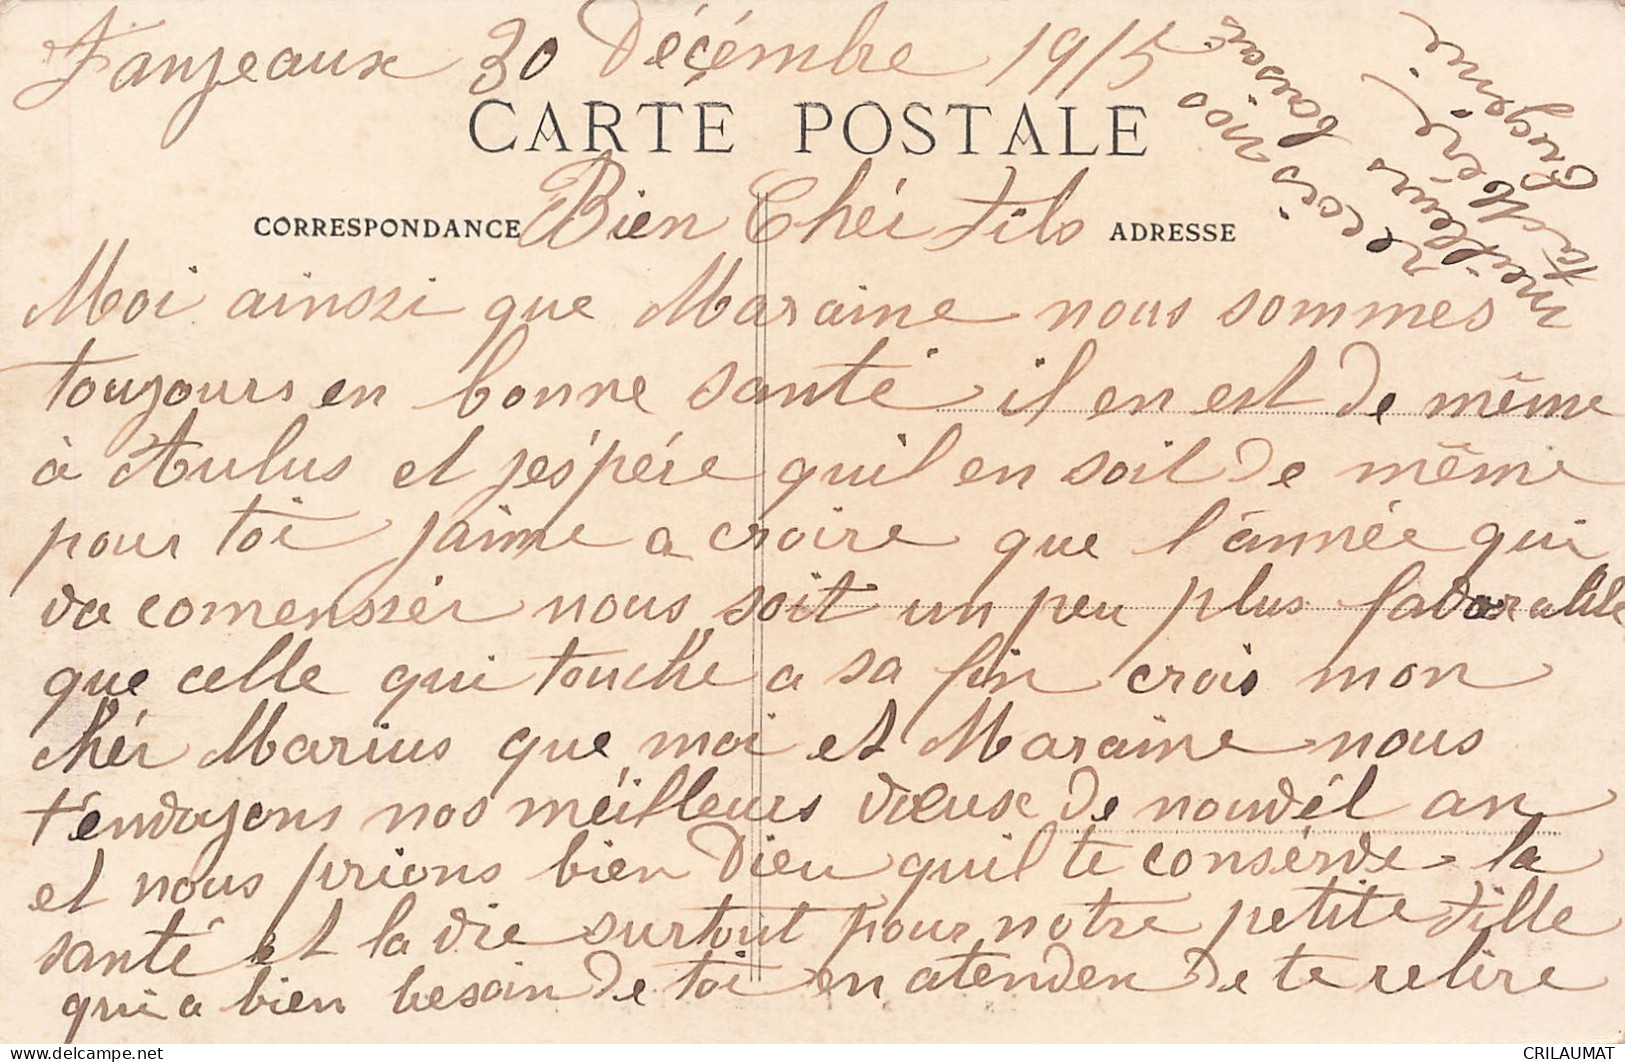 Fanjeaux 30 Décémbre 1915
CARTE POSTALE
CORRESPONDANCE Bien Chéi Fils ADRESSE
Moi ainszi que Maraine nous sommes
toujours en bonne santé il en est de même
à Aulus et jéspére quil en soit de même
pour toi jaime a croire que l'année qui
va comenszér nous soit un peu plus favorable
que celle qui touche a sa fin crois mon
chér Marius que moi et Maraine nous
t'envoyons nos méilleurs vœux de nouvél an
et nous prions bien Dieu quil te consérve la
santé et la vie surtout pour notre petite fille
qui a bien besoin de toi en atenden de te relire
recois nos
meilleurs baisaé
ta Mère
Eugenie
CRILAUMAT